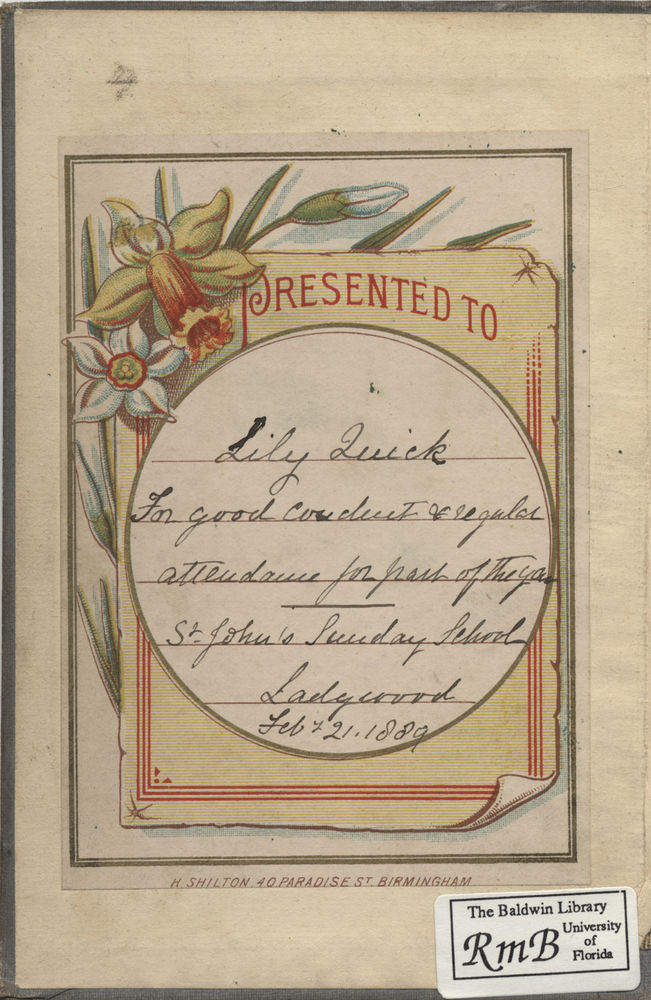 PRESENTED TO
Lily Quick
For good conduct & regular
attendance for part of the year
St John's Sunday School
Ladywood
Feby 21. 1889
H. SHILTON, 40 PARADISE ST. BIRMINGHAM
The Baldwin Library
RmB University
of
Florida